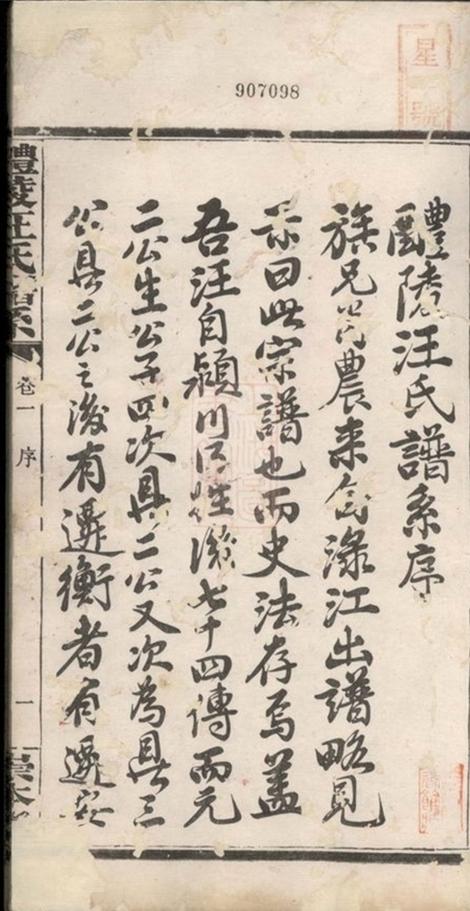 907098
星
號
醴陵汪氏譜系序
族兄省農来自淥江出譜略見
示曰此宗譜也而史法存焉蓋
吾汪自潁川得姓後七十四傳而元
二公生公子四次具二公又次為具三
公具二公之後有遷衡者有遷安
醴陵汪氏譜系
卷一
序
一